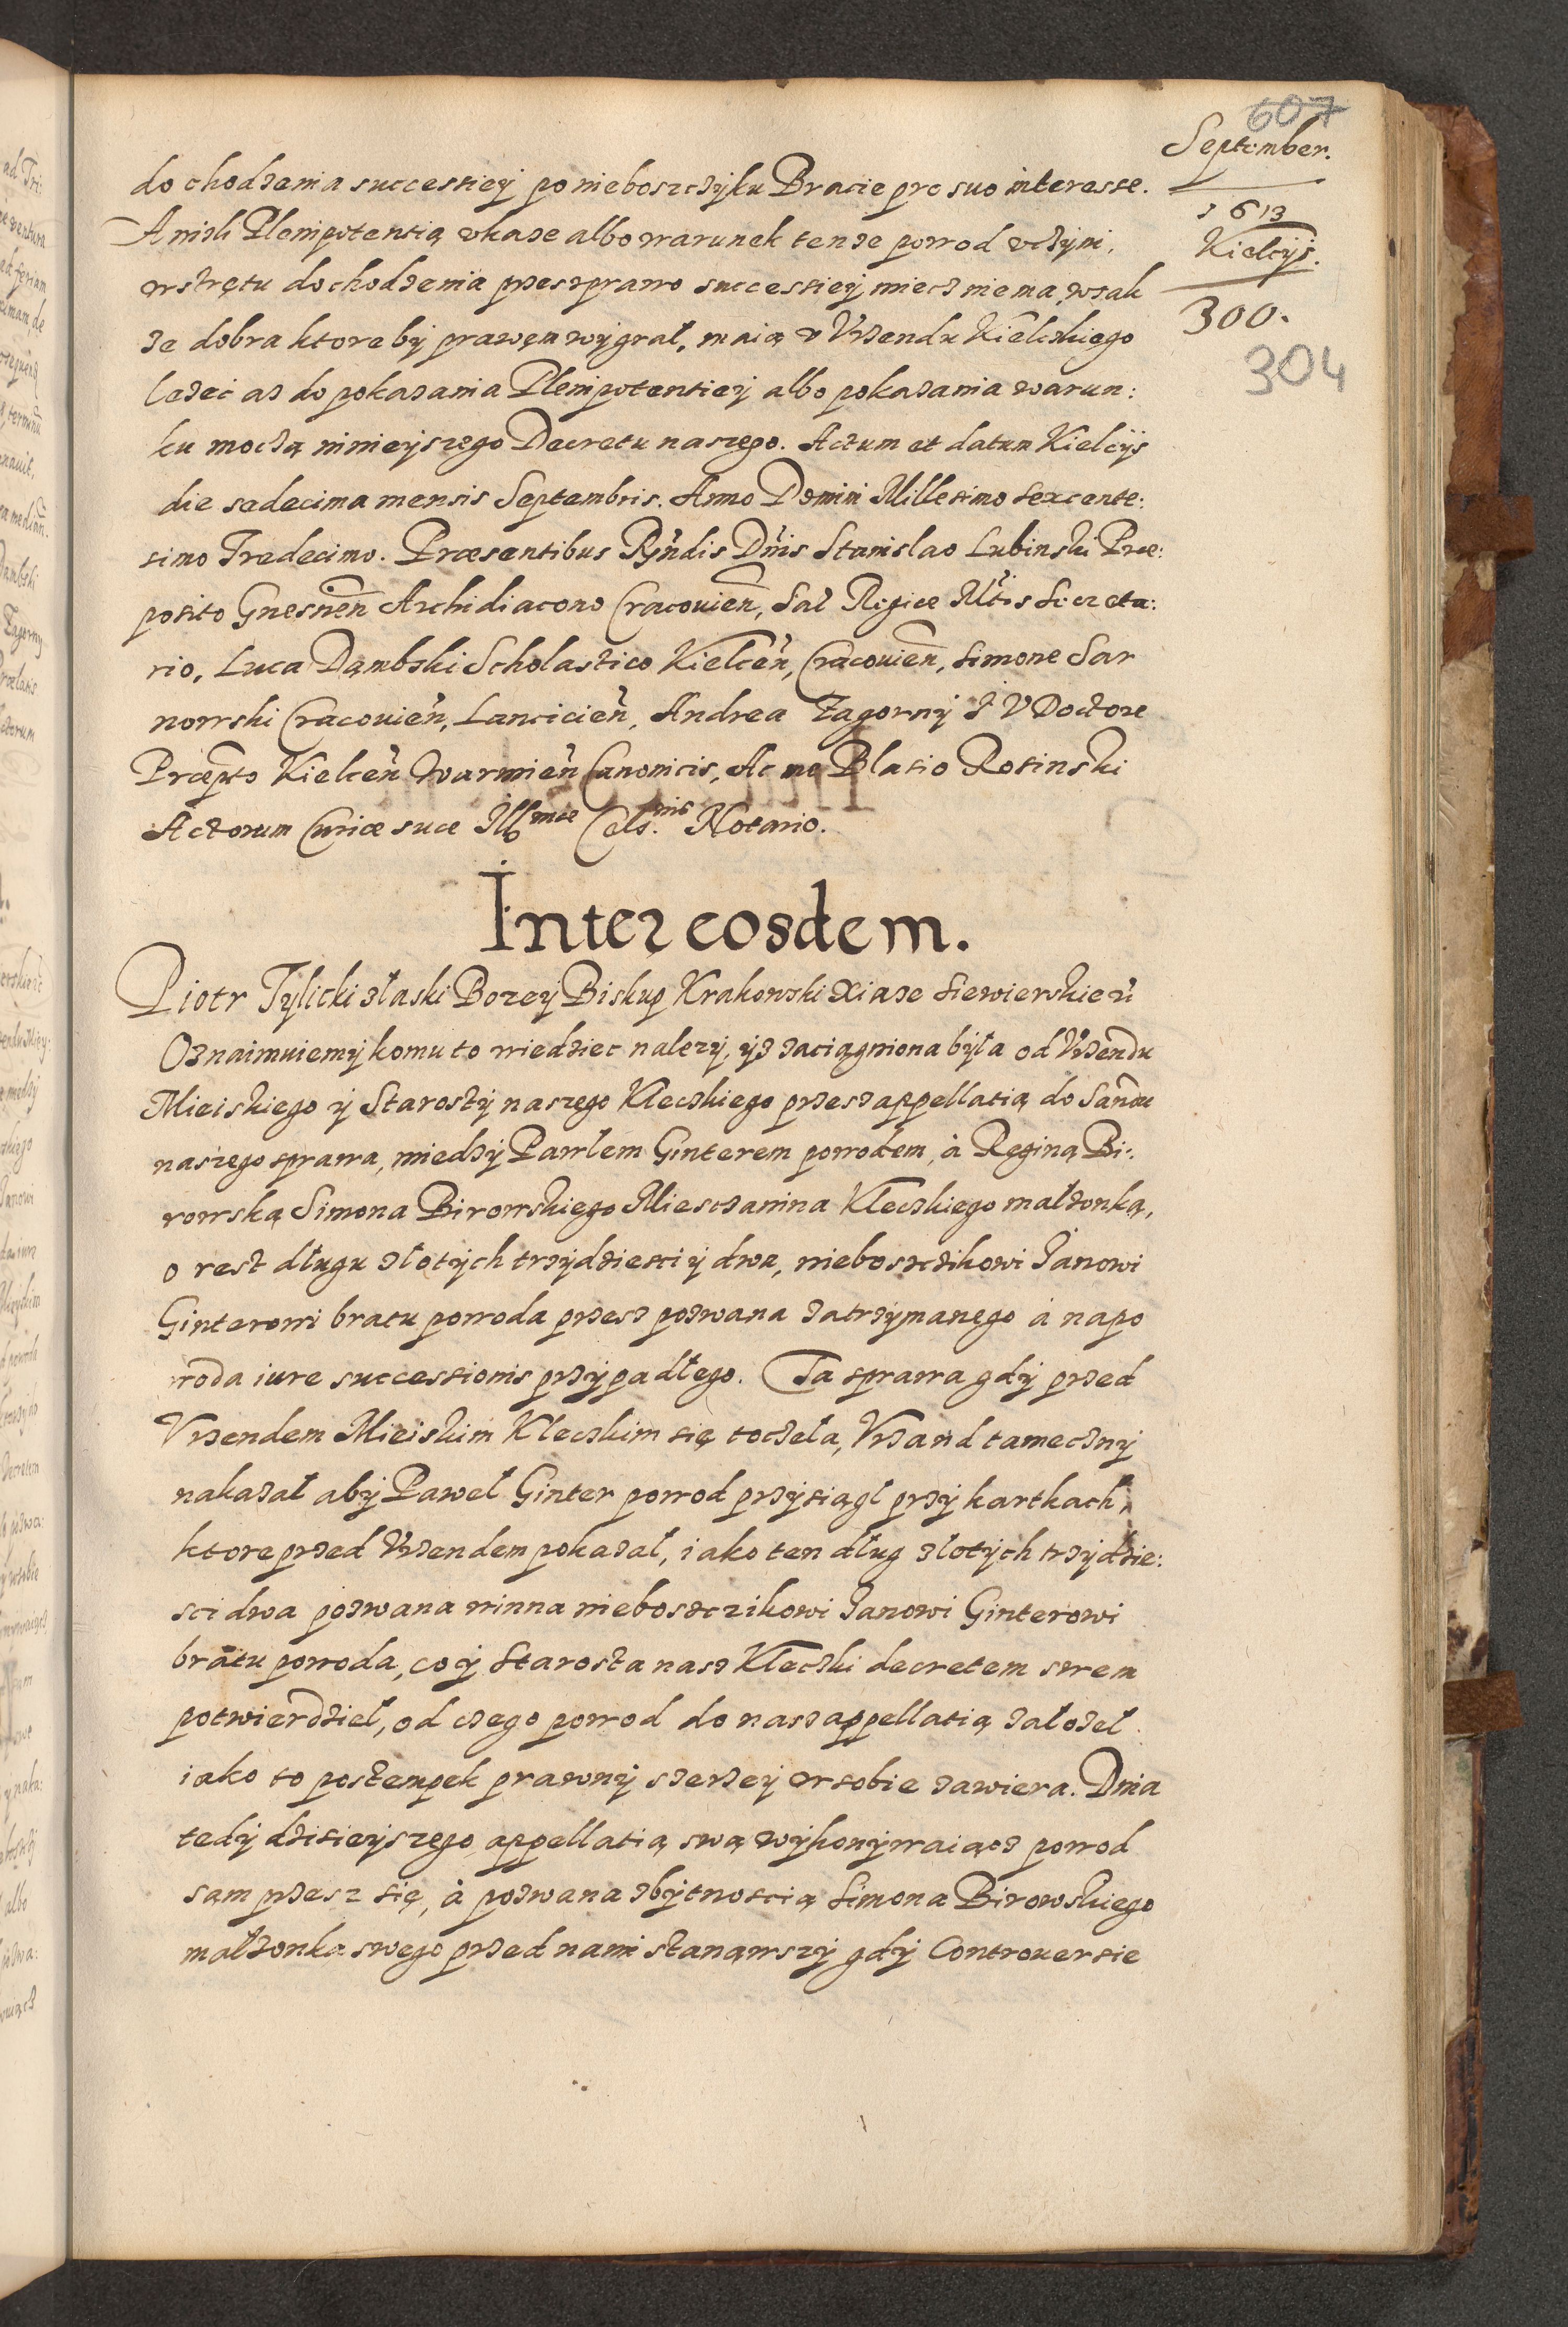 607
September.
1613
Kielcijs.
300.
304
dochodzenia successiey po nieboszczyku Bracie pro suo interesse.
A niżli Plenipotentią vkaze albo warunek tenze powod vczyni,
wstrętu dochodzenia przez prawo successiey miecz nie ma, wzak
ze dobra ktore by prawęm wygrał, maią v Vrzendu Kielckiego
lezeć az do pokazania Plenipotentiey albo pokazania warun:
ku moczą ninieyszego Decretu naszego. Actum et datum Kielcijs
die sedecima mensis Septembris. Anno Domini Millesimo sexcente:
simo Tredecimo. Præsentibus Rñdis Dñis Stanislao Lubinski Præ:
posito Gnesneñ Archidiacono Cracouieñ, Sac Regiæ Mtis Secreta:
rio, Luca Dąmbski Scholastico Kielceñ, Cracouieñ, Simone Sar
nowski Cracouieñ, Lancicieñ, Andrea Zagorny I V Doctore
Præpto Kielceñ Warmieñ Canonicis, Ac me Blasio Rosinski
Actorum Curiæ suæ Illmæ Cels.nis Notario.
Inter eosdem.
Piotr Tylicki złaski Bozey Biskup Krakowski Xiaze Siewierskie
Oznaimuiemy komu to wiedziec nalezy, yz zaciągniona była od Vrzendu
Mieiskiego y Starosty naszego Kleczkiego przez appellatią do Sandu
naszego sprawa, miedzy Pawłem Ginterem powodem, à Reginą Bi:
rowską Simona Birowskiego Miesczanina Kleczkiego małzonką,
o rest długu złotych trzydziesci y dwu, nieboszczikowi Janowi
Ginterowi bratu powoda przez pozwana zatrzymanego à na po
woda iure successionis przypadłego. Ta sprawa gdy przed
Vrzendem Mieiskim Kleczkim się toczeła, Vrzand tameczny
nakazał aby Paweł Ginter powod przysiągł przy kartkach,
ktore przed Vrzendem pokazał, iako ten dług złotych trzydzie:
sci dwa pozwana winna nieboszczikowi Janowi Ginterowi
bratu powoda, co y Starosta nasz Kleczki decretem swem
potwierdzieł, od czego powod do nas appellatią załozeł
iako to postempek prawny szerzey w sobie zawiera. Dnia
tedy dzisieyszego appellatią swą wykonywaiącz powod
sąm przesz się, à pozwana zbytnoscią Simona Birowskiego
małzonka swego przed nami stanąwszy gdy Controuersie